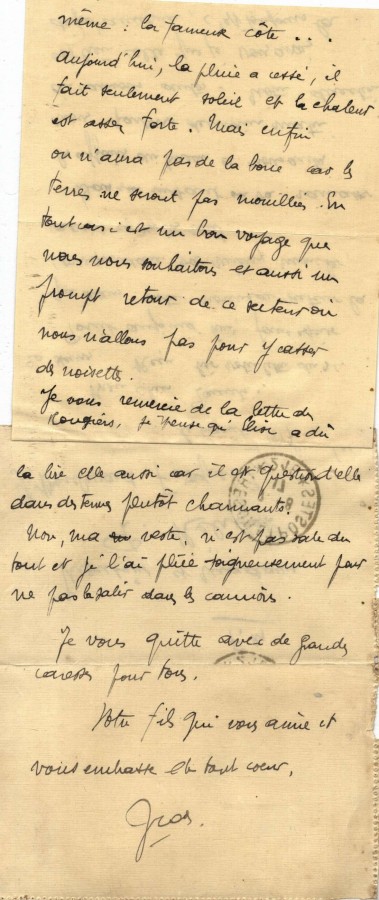 même : la fameuse côte ...
aujourd'hui, la pluie a cessé, il
fait seulement soleil et la chaleur
est assez forte. Mais enfin
on n'aura pas de la boue car les
terres ne seront pas mouillées. En
tout cas c'est un bon voyage que
nous nous souhaitons et aussi un
prompt retour de ce secteur où
nous n'allons pas pour y casser
des noisettes.
Je vous remercie de la lettre des
Rougiers, je pense qu'Elise a dû
la lire elle aussi car il est question d'elle
dans des termes plutôt charmants.
Non, ma veste, n'est pas sale du
tout et je l'ai pliée soigneusement pour
ne pas la salir dans les camions.
Je vous quitte avec de grandes
caresses pour tous.
Votre fils qui vous aime et
vous embrasse de tout coeur.